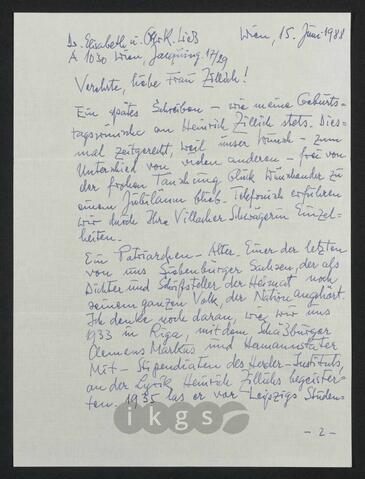 Dr. Elisabeth u. Otto Ließ
Wien, 15. Juni 1988
A 1030 Wien, Jacquing. 17/29
Verehrte, liebe Frau Zillich!
Ein spätes Schreiben – wie meine Geburts-
tagswünsche an Heinrich Zillich stets. Dies-
mal zeitgerecht, weil unser Wunsch – zum
Unterschied von vielen anderen – frei von
der frohen Glück wünschender zu
einem Jubiläum blieb. Telefonisch erfuhren
wir durch Ihre Villacher Schwägerin Einzel-
heiten.
Ein Patriarchen-Alter. Einer der letzten
von uns Siebenbürger Sachsen, der als
Dichter und Schriftsteller der Heimat noch
seinem ganzen Volk, der Nation angehört.
Ich denke noch daran, wie wir uns
1933 in Riga, mit dem Schäßburger
Clemens Markus und Hamannstäter
Mit-Stipendiaten des Herder-Instituts,
an der Lyrik Heinrich Zillichs begeister-
ten. 1935 las er vor Leipzigs Studen-
ikgs
- 2 -